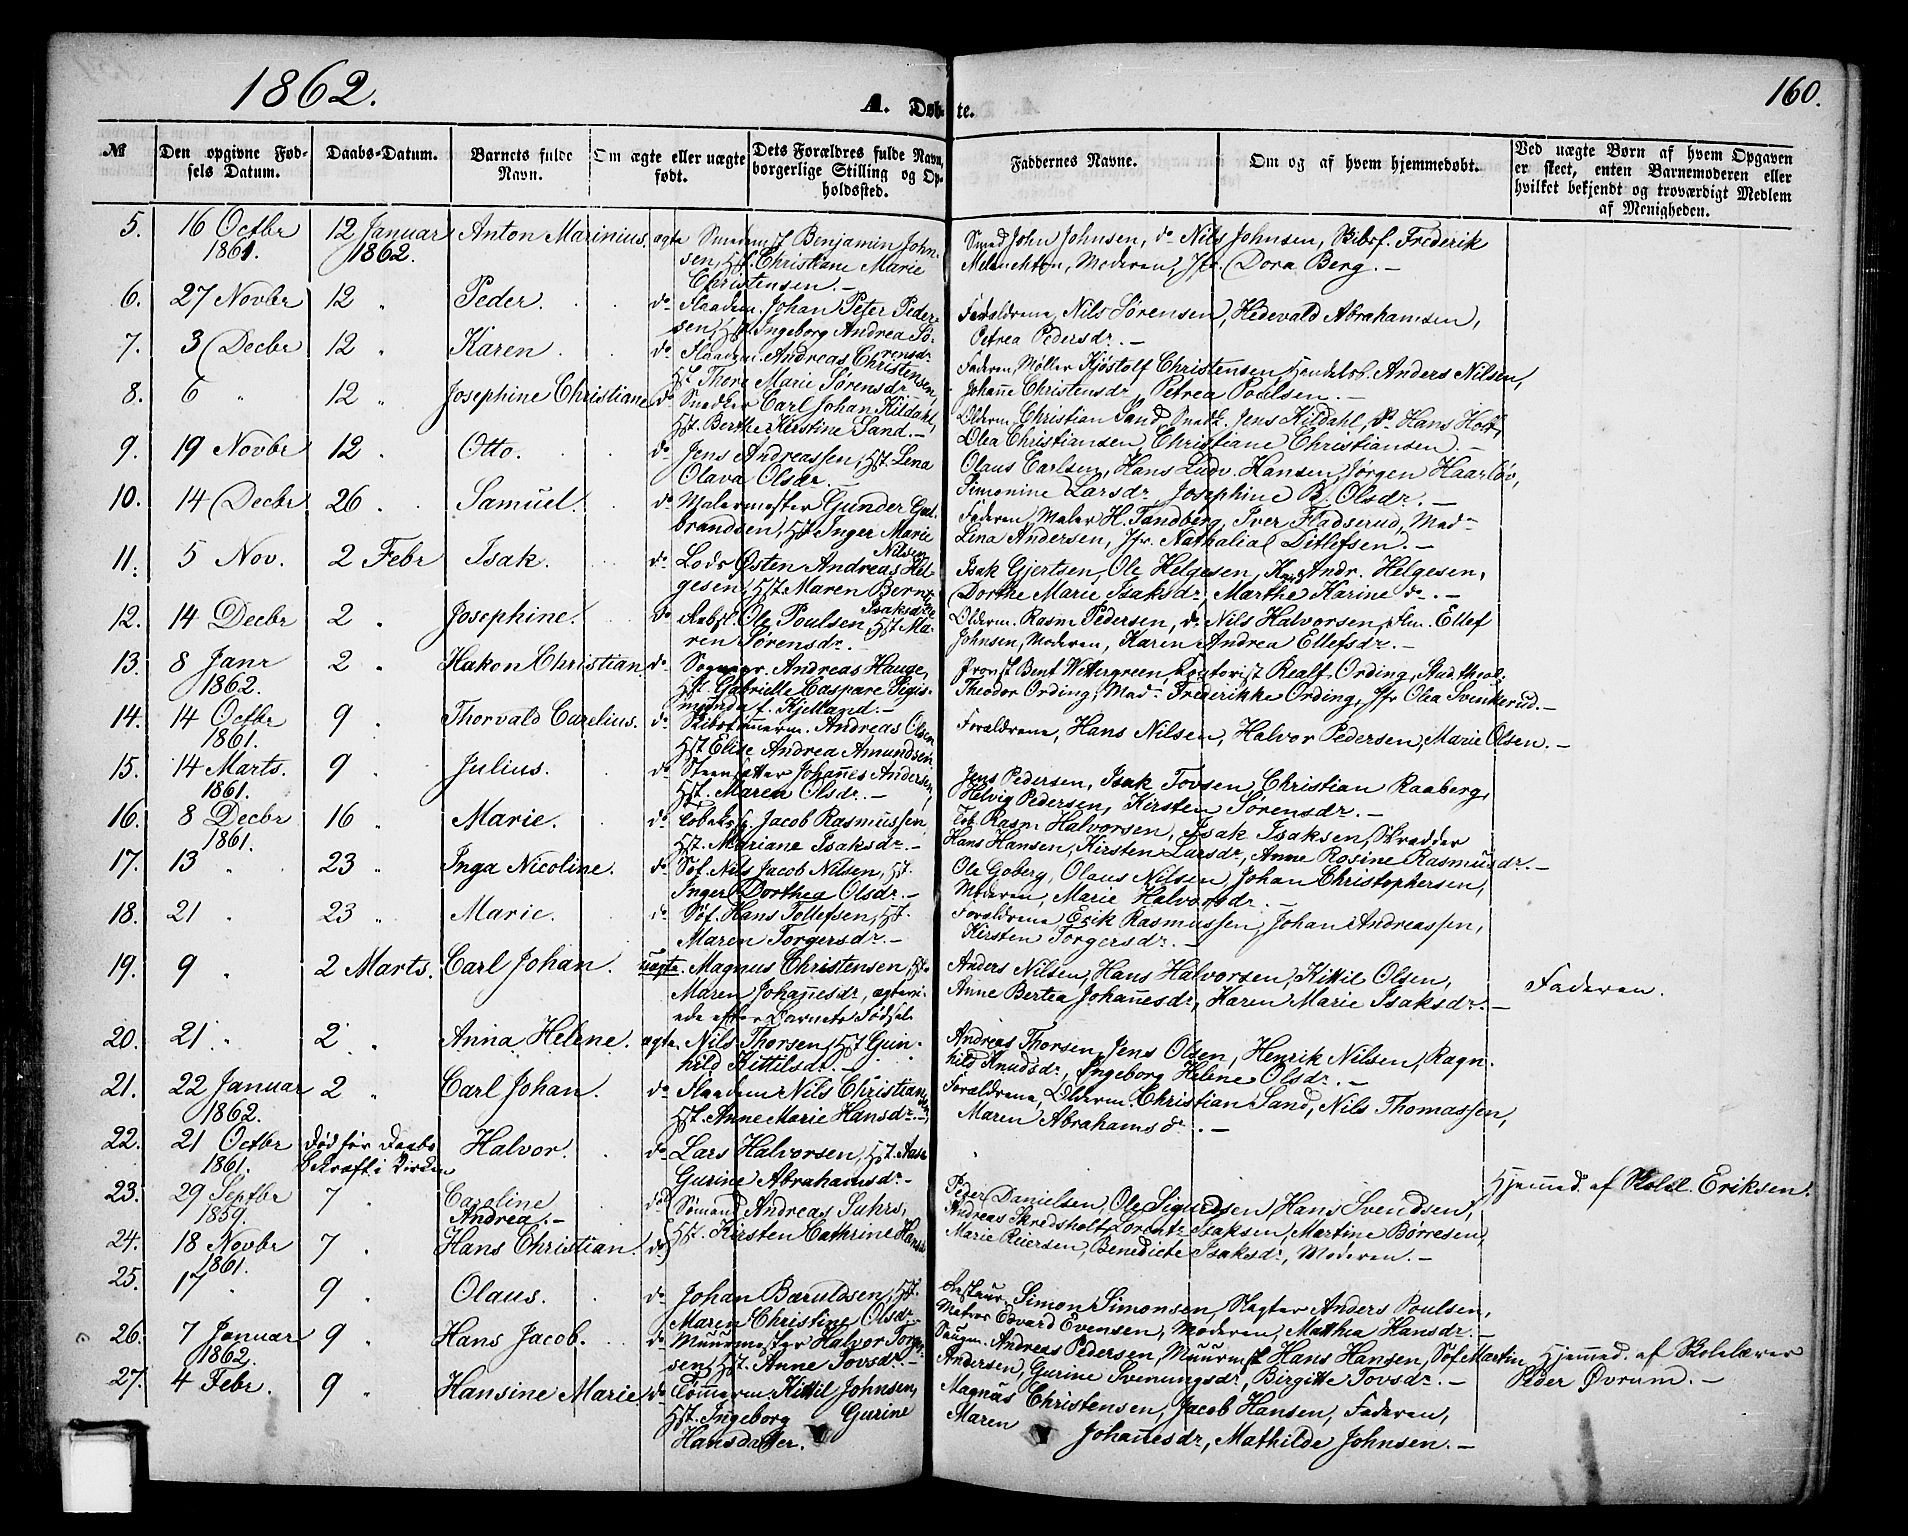 1862.
A. Døbte.
160.
№
Den opgivne Fødsels Datum.
Daabs-Datum.
Barnets fulde Navn.
Om ægte eller uægte født.
Dets Forældres fulde Navn, borgerlige Stilling og Opholdssted.
Faddernes Navne.
Om og af hvem hjemmedøbt.
Ved uægte Børn af hvem Opgaven er skeet, enten Barnemoderen eller hvilket bekjendt og troværdigt Medlem af Menigheden.
5. 16 Octbr 1861. 12 Januar 1862. Anton Marinius. ægte Smedem. Benjamin Johnsen, Hst. Christiane Marie Christensen.—
Smed John Johnsen, do Nils Johnsen, Frederik Melanchton, Moderen, Jfr. Dora Berg.—
6. 27 Novbr 12 " Peder. do Johan Peter Pedersen, Hst Ingeborg Andrea Sørensdr
Forældrene, Nils Sørensen, Hedevald Abrahamsen, Petrea Pedersdr.—
7. 3 Decbr 12 " Karen. do Andreas Christensen, Hst. Thora Marie Sørensdr
Faderen, Møller Kjøstolf Christensen, Anders Nilsen, Johanne Christensdr, Petrea Poulsen.—
8. 6 " 12 " Josephine Christiane do Snedker Carl Johan Kildahl, Hst. Berthe Kirstine Sand.—
Olderm. Christian Sand, Snedk. Jens Kildahl, do Hans Holt, Olea Christiansen, Christiane Christiansen.—
9. 19 Novbr 12 " Otto. do Jens Andreassen, Hst. Lena Olava Olsdr.—
Olaus Carlsen, Hans Ludv. Hansen, Jørgen Haarløv, Simonine Larsdr, Josephine B. Olsdr.—
10. 14 Decbr 26 " Samuel. do Malermester Gunder Gulbrandsen, Hst. Inger Marie Nilsen
Faderen, Maler H. Tandberg, Iver Fladserud, Mad. Lina Andersen, Jfr. Nathalia Ditlefsen.—
11. 5 Nov. 2 Febr Isak. do Lods Østen Andreas Helgesen, Hst. Maren Bernt. Isaksdr
Isak Gjertsen, Ole Helgesen, Knud Andr. Helgesen, Dorthe Marie Isaksdr, Marthe Karine do.—
12. 14 Decbr 2 " Josephine. do Ole Poulsen, Hst. Maren Sørensdr.—
Olderm. Rasm Pedersen, do Nils Halvorsen, Ellef Johnsen, Moderen, Karen Andrea Ellefsdr.—
13. 8 Janr 1862. 2 " Hakon Christian. do Sognepr. Andreas Hauge, Hst. Gabrielle Caspare Sigismunda f. Kjelland.—
Provst Bent Wettergreen, Kontorist Realf Ording, Stud. theol. Theodor Ording, Mad. Frederikke Ording, Jfr Olea Svinkerud.—
14. 14 Octbr 1861. 9 " Thorvald Carelius. do Skibstømmerm. Andreas Olsen Hst Elise Andrea Amundsen
Forældrene, Hans Nilsen, Halvor Pedersen, Marie Olsen.—
15. 14 Marts. 1861. 9 " Julius. do Johannes Andersen, Hst. Maren Olsdr.—
Jens Pedersen, Isak Tovsen, Christian Raaberg, Helvig Pedersen, Kirsten Sørensdr.—
16. 8 Decbr 1861. 16 " Marie. do Jacob Rasmussen, Hst. Mariane Isaksdr.—
Tob. Rasm Halvorsen, Isak Isaksen, Skrædder Hans Hansen, Kirsten Larsdr, Anne Rosine Rasmusdr.—
17. 13 " 23 " Inga Nicoline. do Søf. Nils Jacob Nilsen, Hst. Inger Dorthea Olsdr.—
Ole Goberg, Olaus Nilsen, Johan Christophersen, Moderen, Marie Halvorsdr.—
18. 21 " 23 " Marie. do Søf. Hans Tollefsen, Hst. Maren Torgersdr.—
Forældrene Erik Rasmussen, Johan Andreassen, Kirsten Torgersdr.—
19. 9 " 2 Marts. Carl Johan. uægte. Magnus Christensen, Hst. Maren Johanesdr, ægteviede efter Barnets Fødsel
Anders Nilsen, Hans Halvorsen, Kittil Olsen, Anne Bertea Johanesdr, Karen Marie Isaksdr.—
Faderen.
20. 21 " 2 " Anna Helene. ægte. Nils Thorsen, Hst Gunhild Kittilsdr.—
Andreas Thorsen, Jens Olsen, Henrik Nilsen, Ragnhild Knudsdr, Ingeborg Helene Olsdr.—
21. 22 Januar 1862. 2 " Carl Johan. do Nils Christiansen, Hst. Anne Marie Hansdr.—
Forældrene, Olderm. Christian Sand, Nils Thomassen, Maren Abrahamsdr.—
22. 21 Octbr 1861. Død før Daabs Bekræft. i Kirken Halvor. do Lars Halvorsen, Hst. Aase Gurine Abrahamsdr.—
Hjemmed. af Skolel. Eriksen.
23. 29 Septbr 1859. 7 " Caroline Andrea.— do Sømand Andreas Suhrs, Hst. Kirsten Cathrine Hansd
Peder Danielsen, Ole Sigurdsen, Hans Svendsen, Andreas Skredsholt, Lorentz Isaksen, Martine Børresen,
24. 18 Novbr 1861. 7 " Hans Christian. do
Marie Reiersen, Benedicte Isaksdr, Moderen.—
25. 17 " 9 " Olaus. do Johan Baruldsen, Hst. Maren Christine Olsdr
Simon Simonsen, Slagter Anders Poulsen, Edvard Evensen, Moderen, Matthea Hansdr.—
26. 7 Januar 1862. 9 " Hans Jacob. do Muurmester Halvor Torgersen, Hst. Anne Tovsdr.—
Andreas Pedersen, Muurmst Hans Hansen, Søf. Martin Andersen, Gurine Svenungsdr, Birgitte Tovsdr.—
Hjemmed. af Skolelærer Peder Øvrum.—
27. 4 Febr. 9 " Hansine Marie do Tømmerm. Kittil Johnsen, Hst. Ingeborg Gurine Hansdatter.
Magnus Christensen, Jacob Hansen, Faderen, Maren Johanesdr, Mathilde Johnsen.—